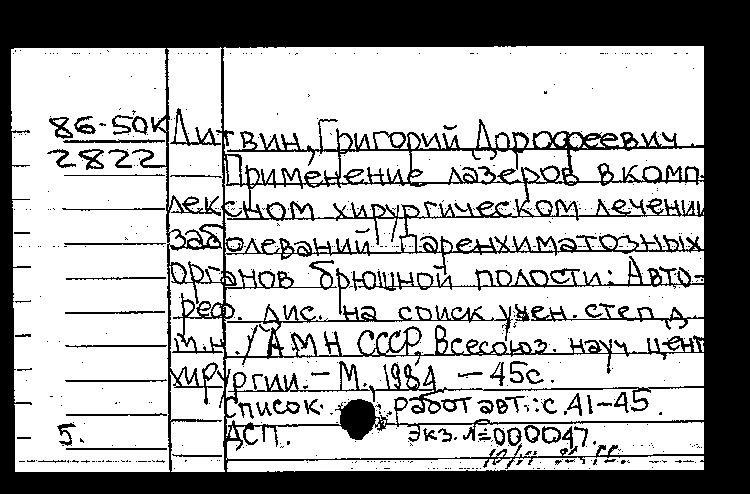 86-50К Литвин, Григорий Дорофеевич.
2822 Применение лазеров в комп-
лексном хирургическом лечении
заболеваний паренхиматозных
органов брюшной полости: Авто-
реф. дис. на соиск. учен. степ. д.
м.н. / АМН СССР, Всесоюз. науч. цент
хирургии. - М., 1984 - 45с.
Список работ авт.: с. 41-45.
5. ДСП. Экз. №000047.